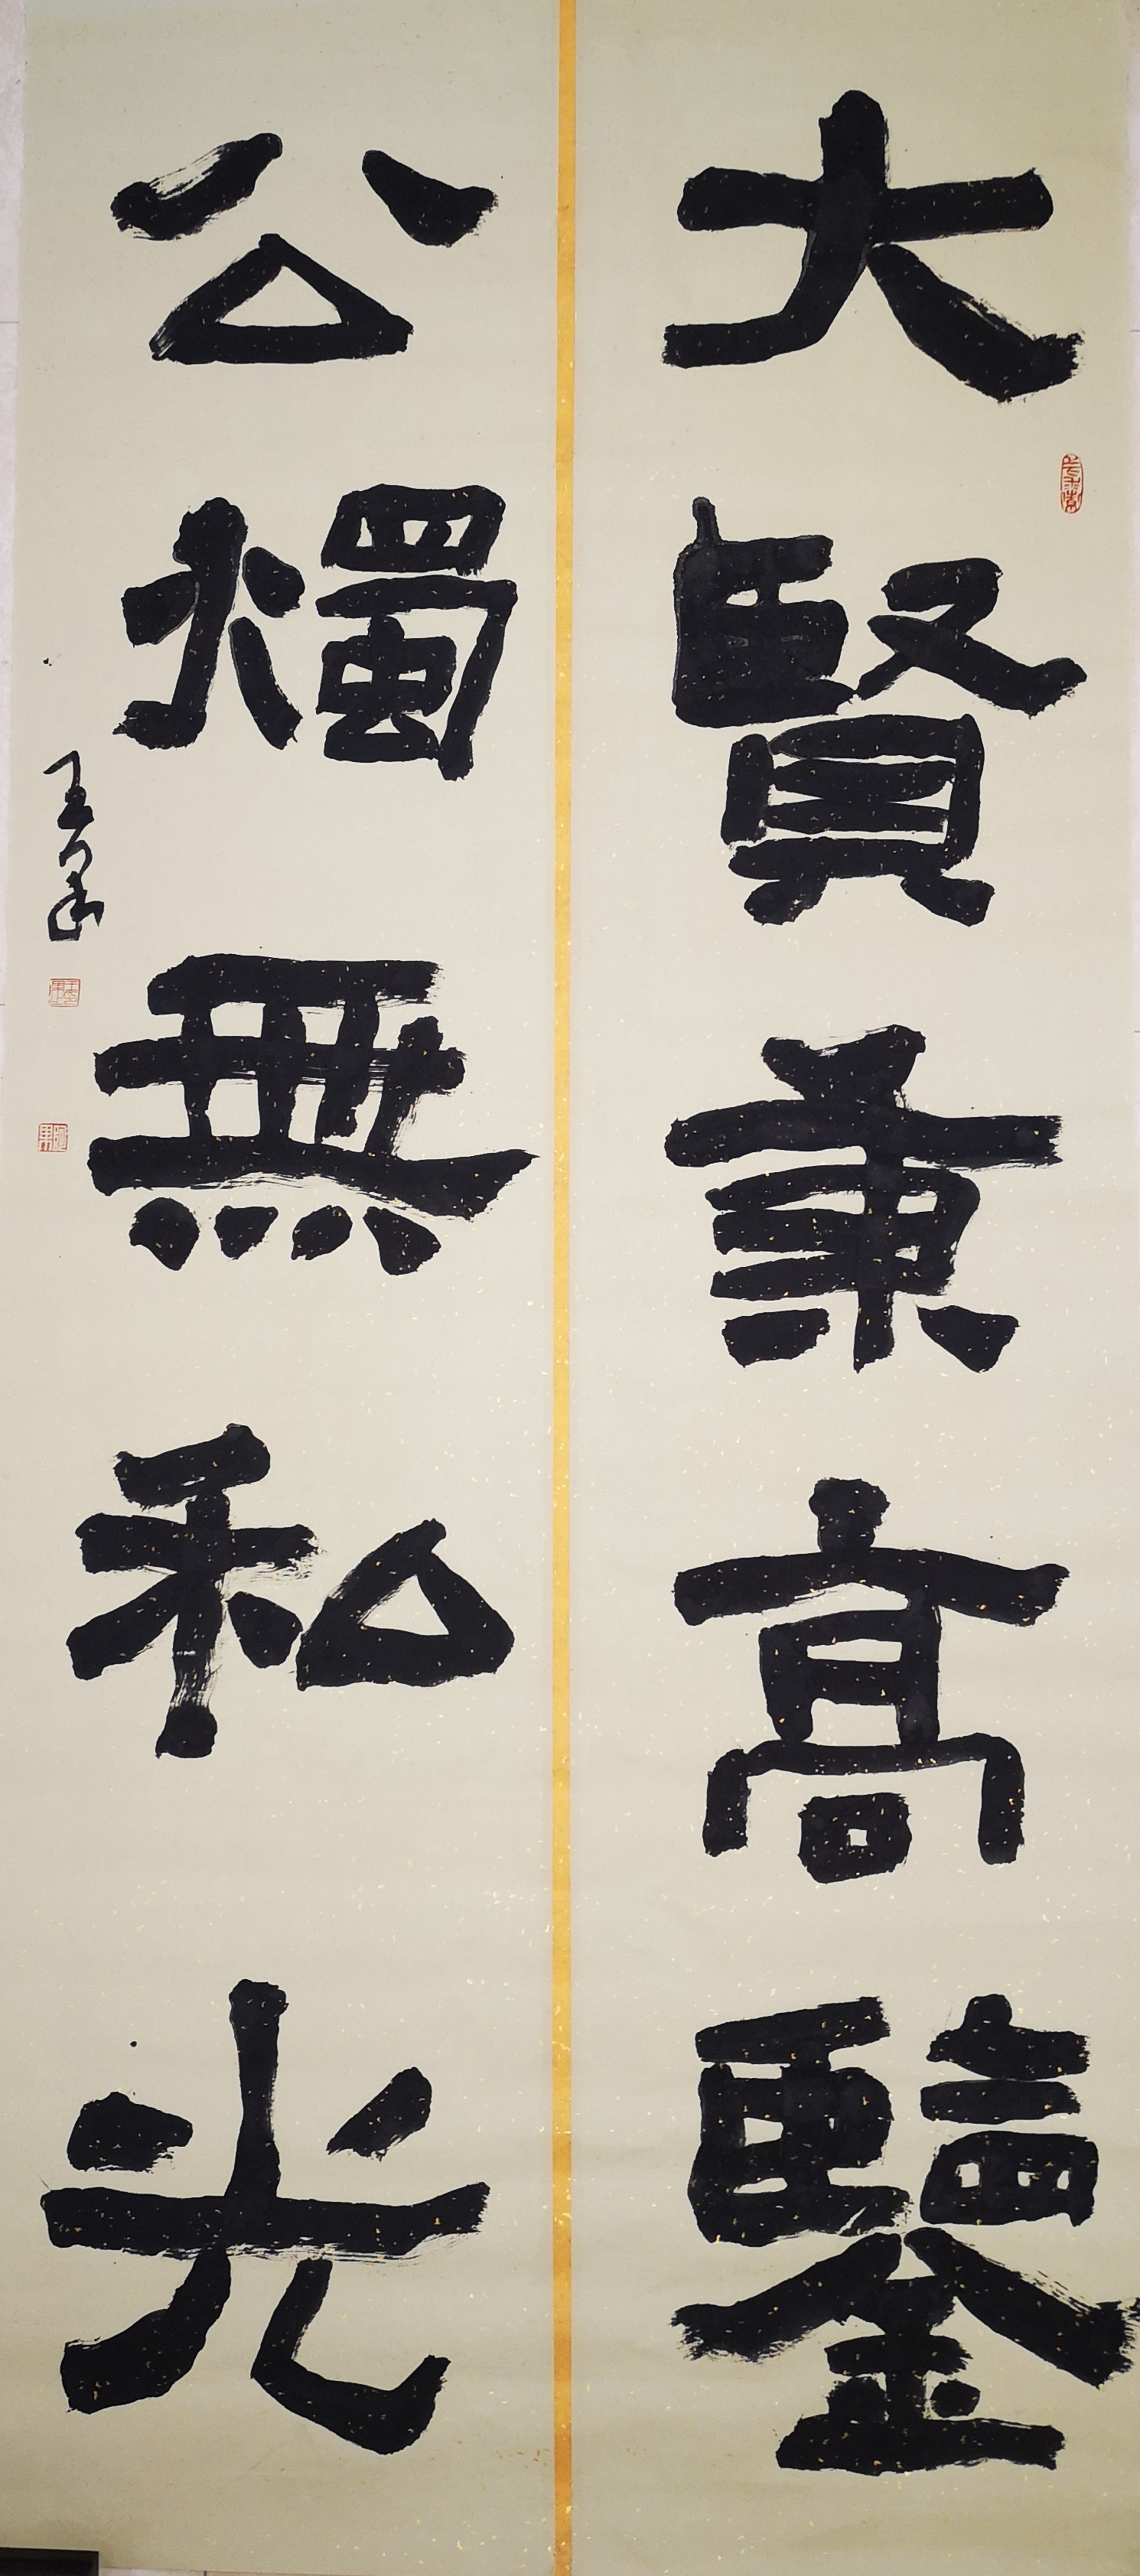 大賢秉高鑒
公燭無私光